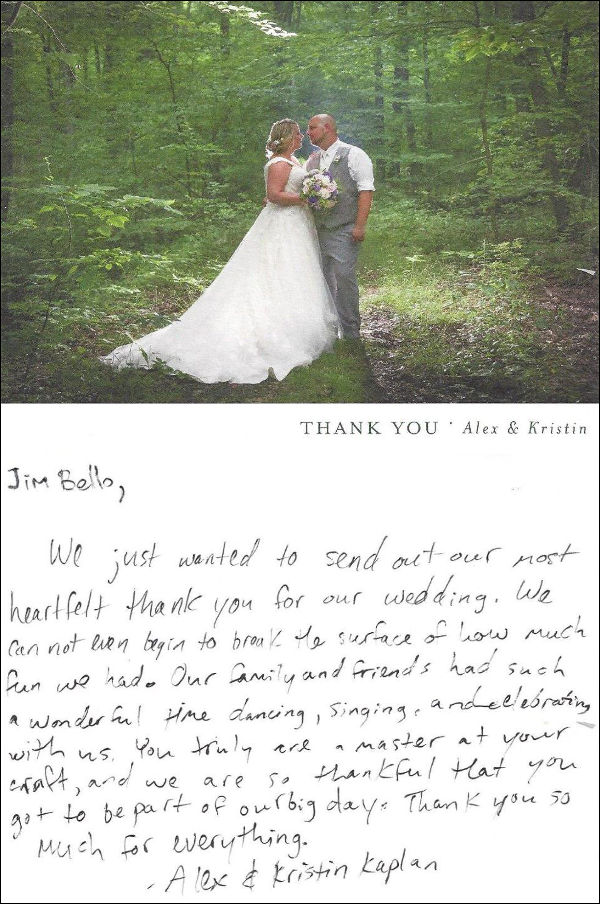 THANK YOU · Alex & Kristin
Jim Bello,
We just wanted to send out our most
heartfelt thank you for our wedding. We
can not even begin to break the surface of how much
fun we had. Our family and friends had such
a wonderful time dancing, singing, and celebrating
with us. You truly are a master at your
craft, and we are so thankful that you
got to be part of our big day. Thank you so
much for everything.
- Alex & Kristin Kaplan